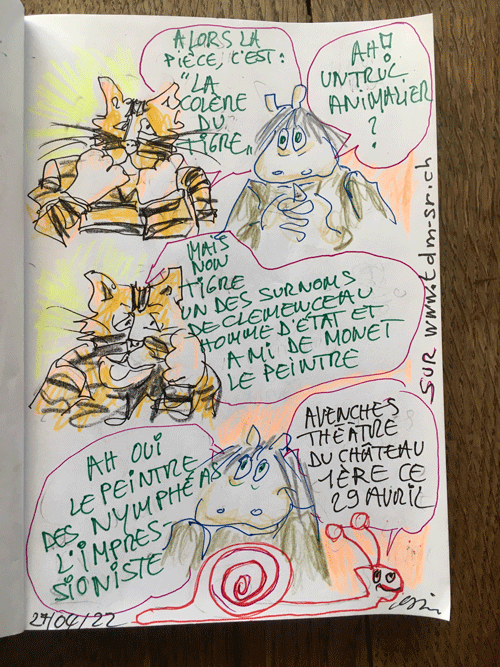 ALORS LA
PIÈCE, C'EST :
"LA
COLÈRE
DU
TIGRE"
AH!
UN TRUC
ANIMALIER
?
MAIS
NON
TIGRE
UN DES SURNOMS
DE CLEMENCEAU
HOMME D'ÉTAT ET
AMI DE MONET
LE PEINTRE
SUR www.tdm-sr.ch
AH OUI
LE PEINTRE
DES NYMPHÉAS
L'IMPRES-
SIONISTE
AVENCHES
THÉÂTRE
DU CHÂTEAU
1ÈRE CE
29 AVRIL
27/04/22